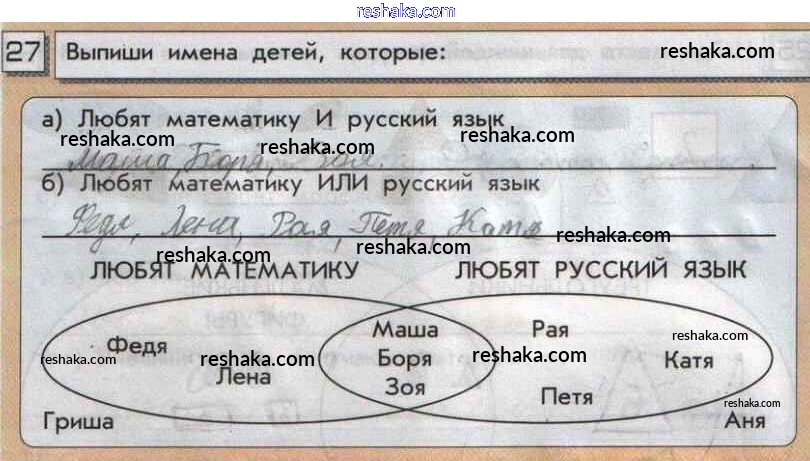 reshaka.com
27 Выпиши имена детей, которые: reshaka.com
а) Любят математику И русский язык
reshaka.com reshaka.com reshaka.com
Маша, Боря, Зоя.
б) Любят математику ИЛИ русский язык
reshaka.com
Федя, Лена, Рая, Петя, Катя
reshaka.com reshaka.com reshaka.com
ЛЮБЯТ МАТЕМАТИКУ ЛЮБЯТ РУССКИЙ ЯЗЫК
Маша Рая reshaka.com
Федя Боря Катя
reshaka.com reshaka.com reshaka.com
Лена Зоя Петя
reshaka.com
Гриша Аня